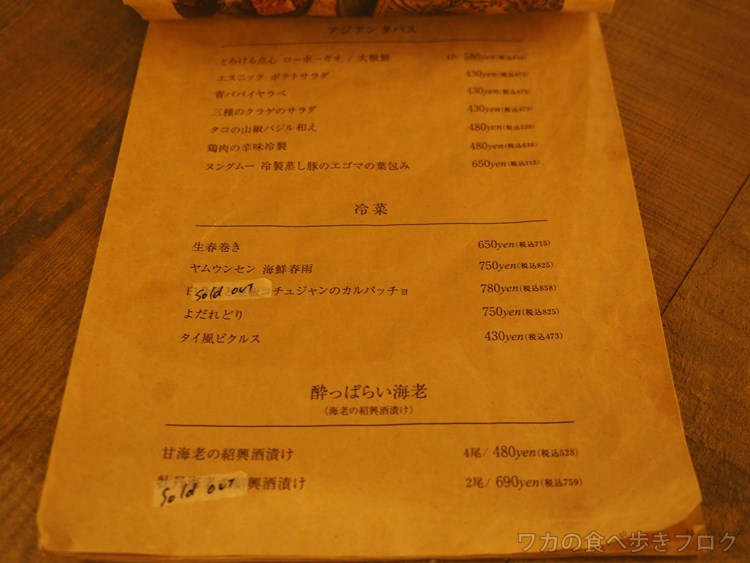 アジアンタパス
とろける点心 ローポーガオ / 大根餅 580yen
エスニック ポテトサラダ 430yen(税込473)
青パパイヤラペ 430yen(税込473)
三種のクラゲのサラダ 430yen(税込473)
タコの山椒バジル和え 480yen(税込528)
鶏肉の辛味冷製 480yen
ヌングムー 冷製蒸し豚のエゴマの葉包み 650yen(税込715)
冷菜
生春巻き 650yen(税込715)
ヤムウンセン 海鮮春雨 750yen(税込825)
Sold OUT コチュジャンのカルパッチョ 780yen(税込858)
よだれどり 750yen(税込825)
タイ風ピクルス 430yen(税込473)
酔っぱらい海老
(海老の紹興酒漬け)
甘海老の紹興酒漬け 4尾/ 480yen(税込528)
Sold OUT 興酒漬け 2尾/ 690yen(税込759)
ワカの食べ歩きブログ